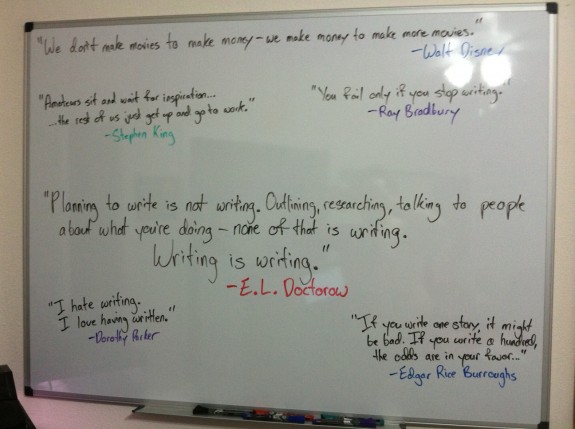 "We don't make movies to make money - we make money to make more movies."
- Walt Disney
"Amateurs sit and wait for inspiration...
...the rest of us just get up and go to work."
- Stephen King
"You fail only if you stop writing."
- Ray Bradbury
"Planning to write is not writing. Outlining, researching, talking to people
about what you're doing - none of that is writing.
Writing is writing."
- E.L. Doctorow
"I hate writing.
I love having written."
- Dorothy Parker
"If you write one story, it might
be bad. If you write a hundred,
the odds are in your favor..."
- Edgar Rice Burroughs